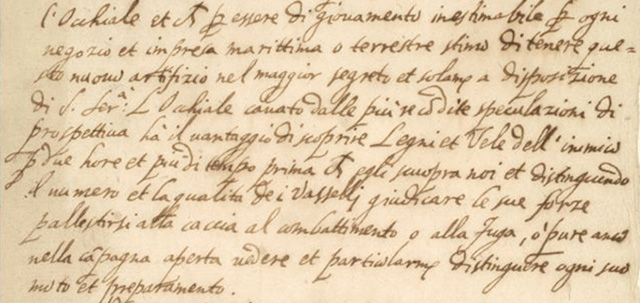 l'Occhiale et ch p essere di giovamento inestimabile p ogni
negozio et impresa marittima o terrestre stimo di tenere que=
sto nuovo artifizio nel maggior segreto et solamᵉ a disposizione
di S. Serᵗᵃ. L'Occhiale cavato dalle più recōdite speculazioni di
prospettiva hà il vantaggio di scoprire Legni et Vele dell'inimico
p due hore et più di tempo prima ch egli scuopra noi et distinguendo
il numero et la qualità de i Vasselli giudicare le sue forze
pallestirsi alla caccia al combattimento o alla fuga, o pure anco
nella cāpagna aperta vedere et particularmᵉ distinguere ogni suo
moto et preparamento.